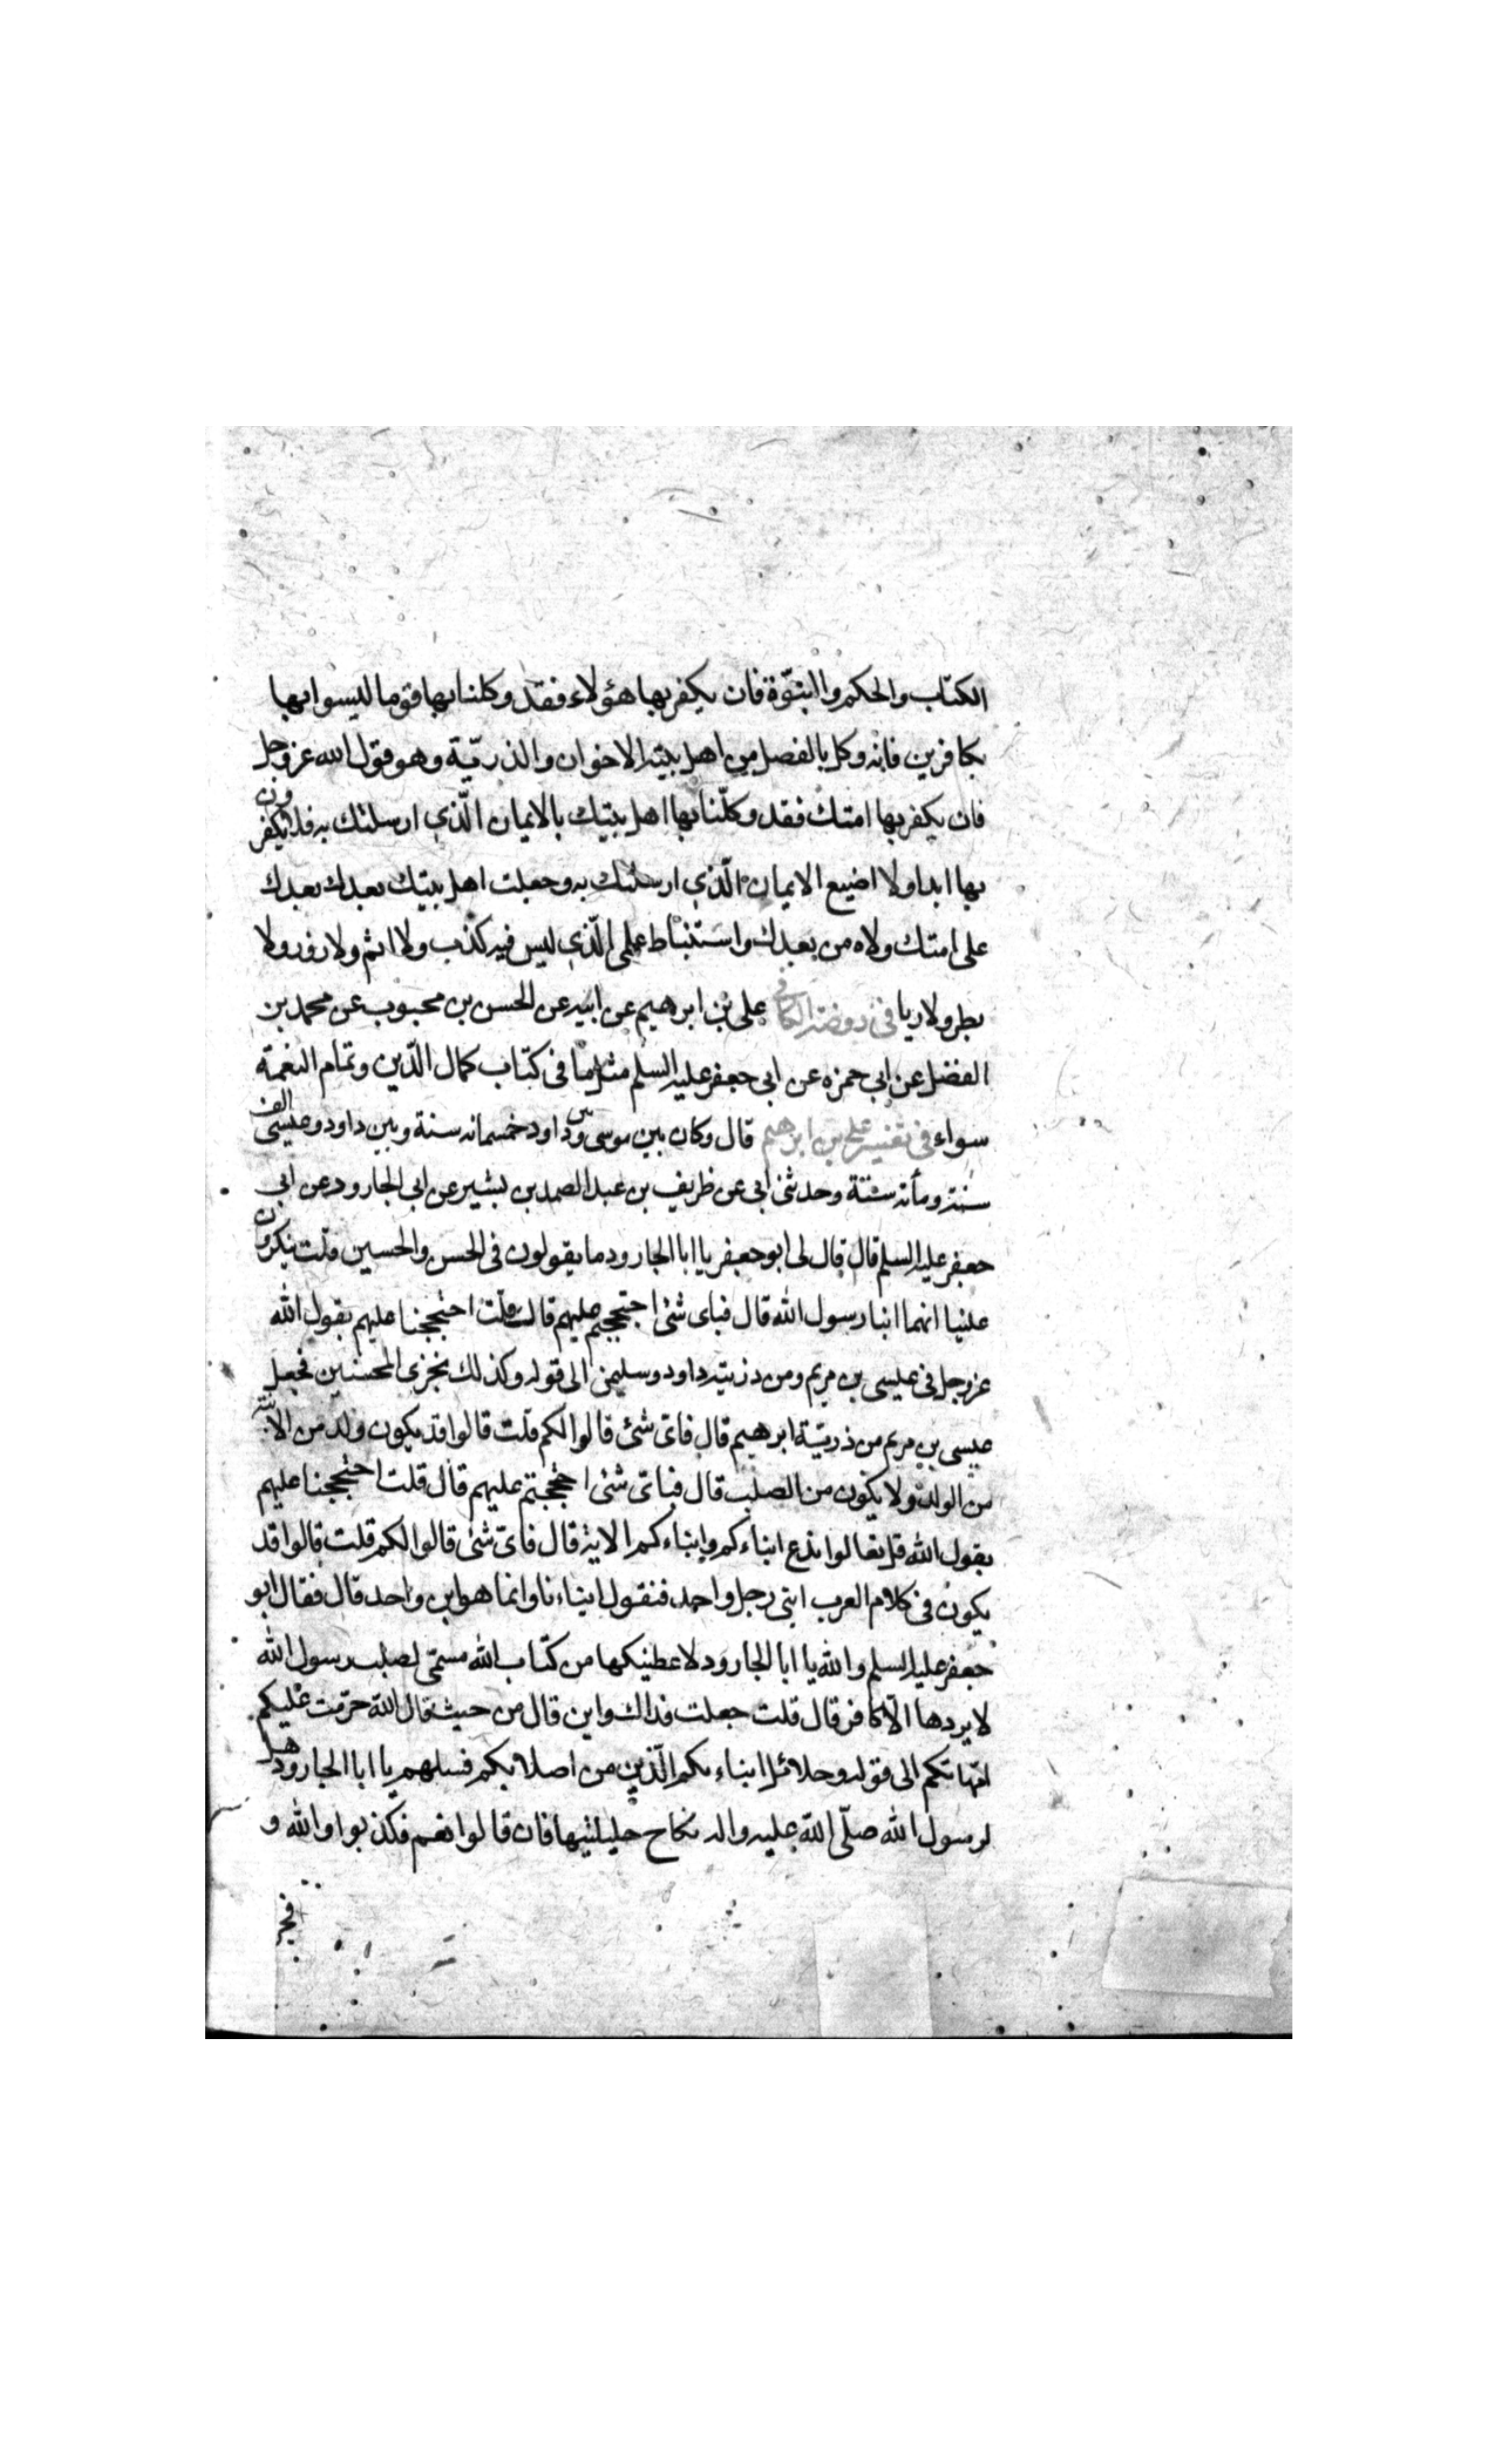 الكتاب والحكم والنبوّة فان يكفر بها هؤلاء فقد وكلنا بها قوما ليسوا بها
بكافرين فانه وكل بالفصل من اهل بيته الاخوان والذرية وهو قول الله عز وجل
فان يكفر بها امتك فقد وكلّنا بها اهل بيتك بالايمان الّذي ارسلتك به فلا يكفرون
بها ابدا ولا اضيع الايمان الّذي ارسلتك به وجعلت اهل بيتك بعدك بعدك
على امتك ولاه من بعدك واستنباط علمى الّذي ليس فيه كذب ولا اثم ولا زور ولا
بطر ولا ريا فى روضة الكافى على بن ابرهيم عن ابيه عن الحسن بن محبوب عن محمد بن
الفضل عن ابى حمزه عن ابى جعفر عليه السلم مثل ما فى كتاب كمال الدّين وتمام النعمة
سواء فى تفسير على بن ابرهيم قال وكان بين موسى وبين داود خمسمائه سنة وبين داود وعيسى الف
سنة ومأته سنة وحدثنى ابى عن ظريف بن عبد الصمد بن بشير عن ابى الجارود عن ابى
جعفر عليه السلم قال قال لى ابو جعفر يا ابا الجارود ما يقولون فى الحسن والحسين قلت ينكرون
علينا انهما ابنا رسول الله قال فباى شئ احتججتم عليهم قالت قلت احتججنا عليهم بقول الله
عز وجل فى عيسى بن مريم ومن ذريته داود وسليمن الى قوله وكذلك نجزى المحسنين فجعل
عيسى بن مريم من ذريّة ابرهيم قال فاىّ شئ قالوا لكم قلت قالوا قد يكون ولد من الابنة
من الولد ولا يكون من الصلب قال فباىّ شئ احتججتم عليهم قال قلت احتججنا عليهم
بقول الله قل تعالوا ندع ابناءكم وابناءكم الاية قال فاىّ شئ قالوا لكم قلت قالوا قد
يكون فى كلام العرب ابنى رجل واحد فنقول ابناءنا وانما هو ابن واحد قال فقال ابو
جعفر عليه السلم والله يا ابا الجارود لاعطينكها من كتاب الله مسمّى لصلب رسول الله
لا يردها الّا كافر قال قلت جعلت فداك واين قال من حيث قال الله حرّمت عليكم
امّهاتكم الى قوله وحلائل ابناءكم الّذين من اصلابكم فسلهم يا ابا الجارود هل
لرسول الله صلّى الله عليه واله نكاح حليلتيها فان قالوا نعم فكذبوا والله و
فجر